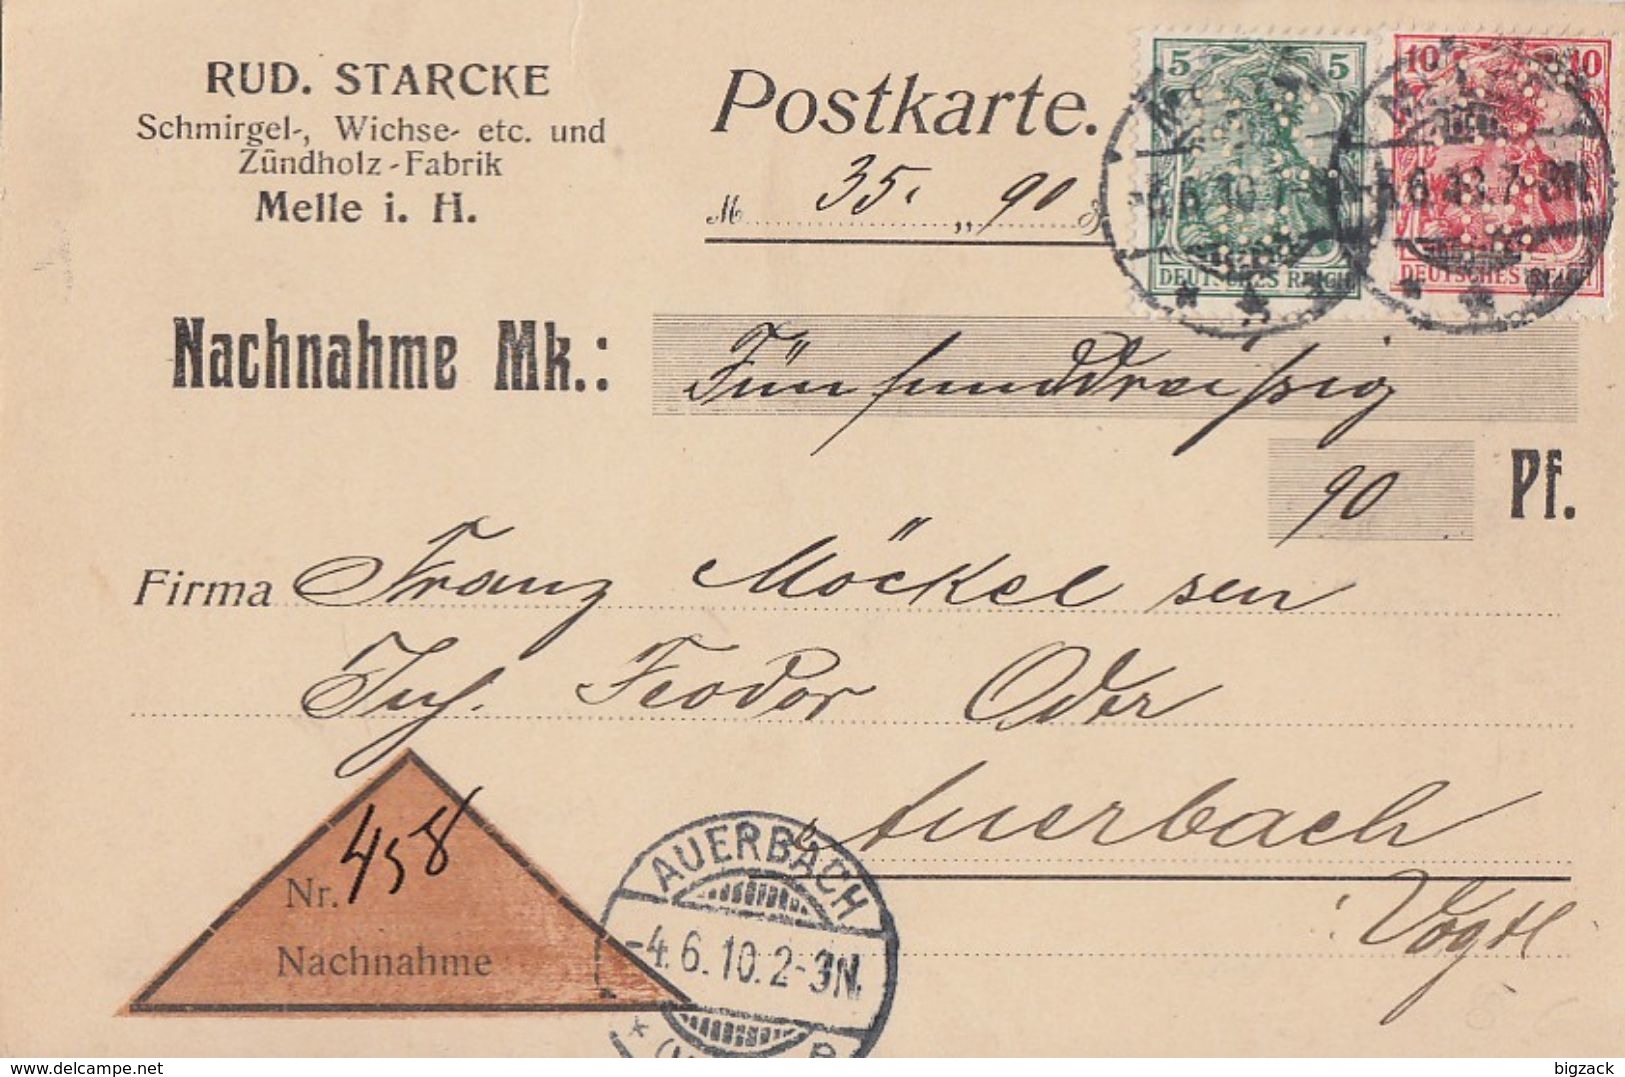 RUD. STARCKE
Schmirgel-, Wichse- etc. und
Zündholz-Fabrik
Melle i. H.
Postkarte.
M 35. „ 90 ₰
5 5
DEUTSCHES REICH
10 10
DEUTSCHES REICH
6.10.7-8N
Nachnahme Mk.:
Fünfunddreißig
90 Pf.
Firma Franz Möckel sen
Inh. Feodor Oder
Auerbach
Vogtl
458
Nr.
Nachnahme
AUERBACH
-4.6.10.2-3N.
delcampe.net
bigzack